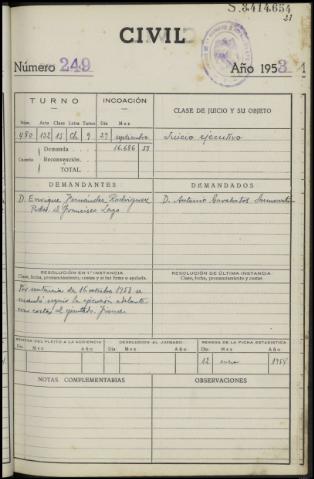 S.3414.654
21
CIVIL
Número 249
Año 1953
TURNO
INCOACIÓN
CLASE DE JUICIO Y SU OBJETO
Núm. Acto Clase Letra Turno Día Mes
480 132 13 Ch 9 29 septiembre
Juicio ejecutivo
Demanda 16.686 58
Cuantía Reconvención.
TOTAL
DEMANDANTES
DEMANDADOS
D. Enrique Fernández Rodríguez
D. Antonio
Prdor. D. Francisco Lago
RESOLUCIÓN EN 1.ª INSTANCIA
Clase, fecha, pronunciamiento, costas y si fué firme o apelada.
RESOLUCIÓN DE ÚLTIMA INSTANCIA
Clase, fecha, pronunciamiento y costas
Por sentencia de 16 octubre 1953 se
mandó seguir la ejecución adelante
con costas al ejecutado. Firme
REMESA DEL PLEITO A LA AUDIENCIA
DEVOLUCIÓN AL JUZGADO
REMESA DE LA FICHA ESTADÍSTICA
Día Mes Año Día Mes Año Día Mes Año
12 enero 1954
NOTAS COMPLEMENTARIAS
OBSERVACIONES